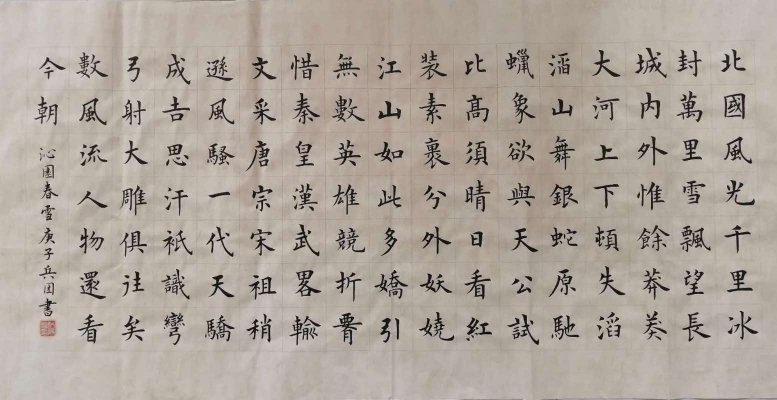 北國風光千里冰
封萬里雪飄望長
城内外惟餘莽莽
大河上下頓失滔
滔山舞銀蛇原馳
蠟象欲與天公試
比髙須晴日看紅
装素裹分外妖嬈
江山如此多嬌引
無數英雄競折腰
惜秦皇漢武畧輸
文采唐宗宋祖稍
遜風騷一代天驕
成吉思汗衹識彎
弓射大雕俱往矣
數風流人物還看
今朝 沁園春雪庚子兵国書